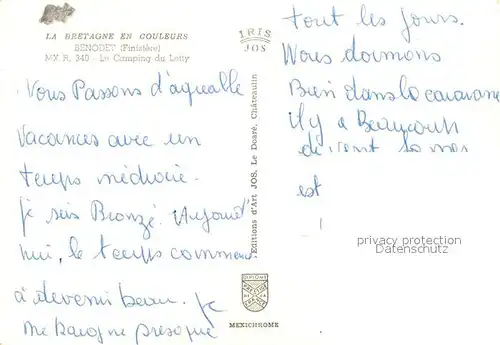 LA BRETAGNE EN COULEURS
BENODET (Finistère)
MX R. 340 - Le Camping du Letty
IRIS
JOS
Vous Passons d'agreable
vacances avec un
temps médiocre.
je suis Bronzé. Aujourd'
hui, le temps commence
à devenir beau. Je
me baigne presque
Editions d'Art JOS, Le Doaré, Châteaulin
MEXICHROME
tout les jours.
Nous dormons
Bien dans la caravane
il y a Beaucoup
est
privacy protection
Datenschutz